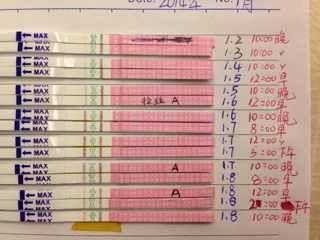 Date: 2014年 No. 1月
MAX 1.2 10:00 晚
MAX 1.3 10:00
MAX 1.4 10:00
MAX 1.5 12:00 早
MAX 1.5 10:00 晚
MAX A 1.6 12:00 早
MAX 1.6 10:00 晚
MAX 1.7 8:00 早
MAX 1.7 12:00
MAX 1.7 5:00 下午
MAX A 1.7 10:00 晚
MAX 1.8 8:00 早
MAX A 1.8 12:00
MAX 1.8 :00 下午
MAX 1.8 10:00 晚